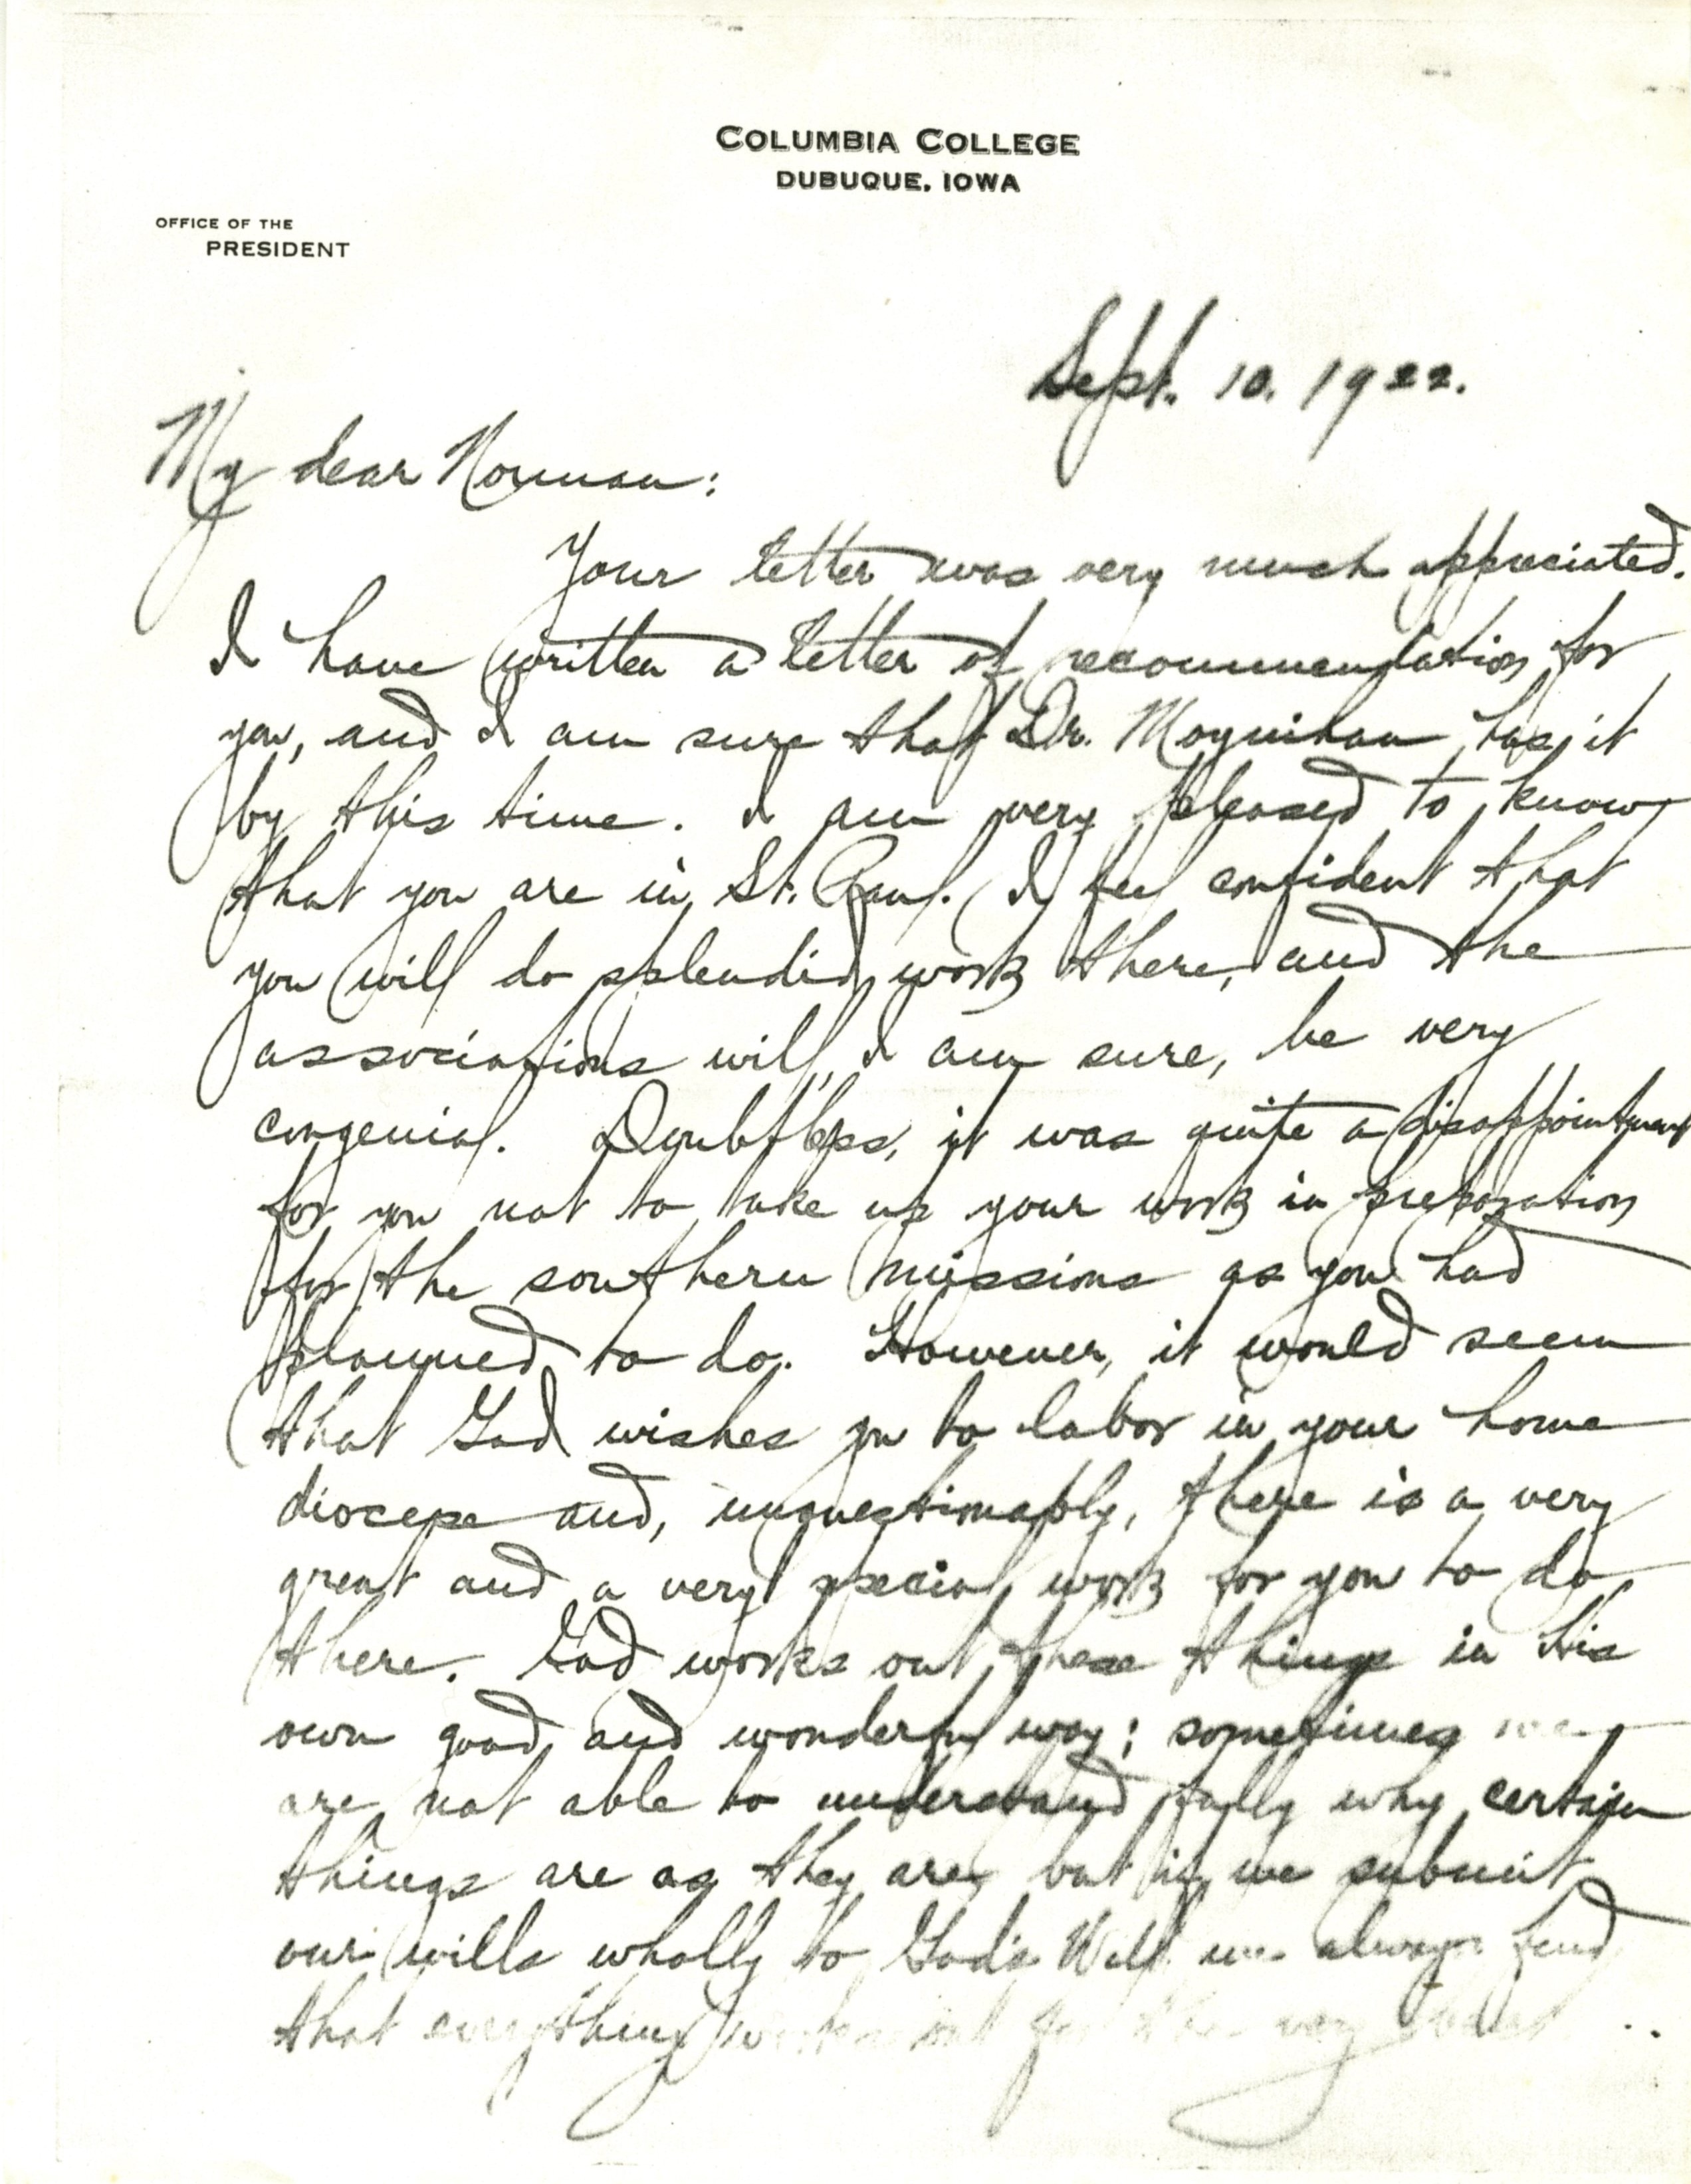 COLUMBIA COLLEGE
DUBUQUE, IOWA
OFFICE OF THE
PRESIDENT
Sept. 10. 1922.
My dear Norman:
Your letter was very much appreciated.
I have written a letter of recommendation for
you, and I am sure that Dr. Moynihan has it
by this time. I am very pleased to know
that you are in St. Paul. I feel confident that
you will do splendid work there, and the
associations will, I am sure, be very
congenial. Doubtless, it was quite a disappointment
for you not to take up your work in preparation
for the southern missions as you had
planned to do. However, it would seem
that God wishes you to labor in your home
diocese and, unquestionably, there is a very
great and a very special work for you to do
there. God works out these things in His
own good and wonderful way; sometimes we
are not able to understand fully why certain
things are as they are, but if we submit
our wills wholly to God's Will we always find
that everything works out for the very best